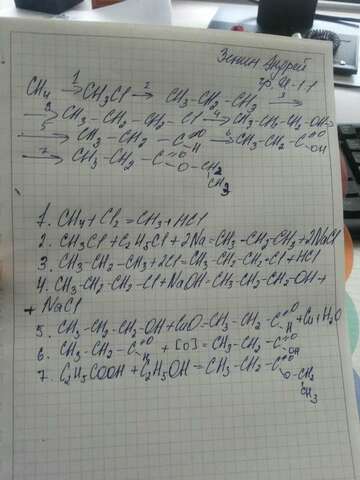 Зенин Андрей
гр. 91-11
CH₄ –1→ CH₃Cl –2→ CH₃-CH₂-CH₃ –3→
–3→ CH₃-CH₂-CH₂-Cl –4→ CH₃-CH₂-CH₂-OH
–5→ CH₃-CH₂-C=O
H –6→ CH₃-CH₂-C=O
OH
–7→ CH₃-CH₂-C=O
O-CH₂
CH₃
1. CH₄+Cl₂=CH₃+HCl
2. CH₃Cl+C₂H₅Cl+2Na=CH₃-CH₂-CH₃+2NaCl
3. CH₃-CH₂-CH₃+2Cl=CH₃-CH₂-CH₂-Cl+HCl
4. CH₃-CH₂-CH₂-Cl+NaOH=CH₃-CH₂-CH₂-OH+
+NaCl
5. CH₃-CH₂-CH₂-OH+CuO=CH₃-CH₂-C=O
H +Cu+H₂O
6. CH₃-CH₂-C=O
H +[O]=CH₃-CH₂-C=O
OH
7. C₂H₅COOH+C₂H₅OH=CH₃-CH₂-C=O
O-CH₂
CH₃